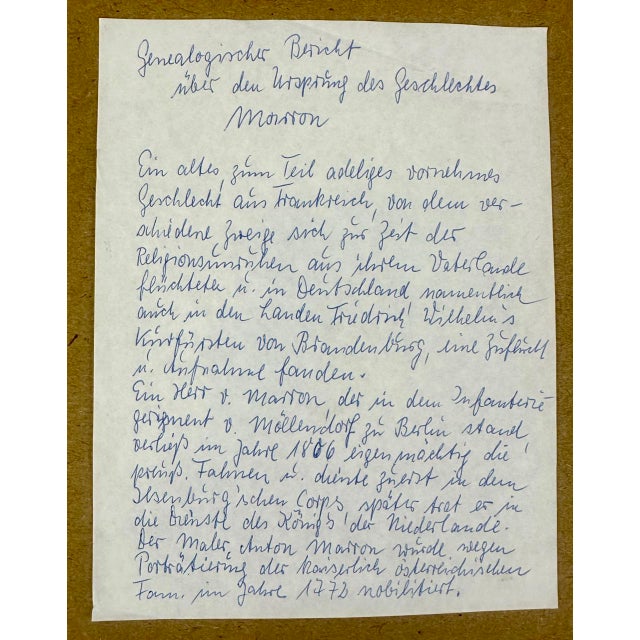 Genealogischer Bericht
über den Ursprung des Geschlechtes
Marron
Ein altes, zum Teil adeliges vornehmes
Geschlecht aus Frankreich, von dem ver-
schiedene Zweige sich zur Zeit der
Religionsunruhen aus ihrem Vaterlande
flüchteten u. in Deutschland namentlich
auch in den Landen Friedrich Wilhelm's
Kurfürsten von Brandenburg, eine Zuflucht
u. Aufnahme fanden.
Ein Herr v. Marron der in dem Infanterie
regiment v. Möllendorf zu Berlin stand,
verließ im Jahre 1806 eigenmächtig die
preuß. Fahnen u. diente zuerst in dem
Isenburg'schen Corps, später trat er in
die Dienste des Königs der Niederlande.
Der Maler, Anton Marron wurde wegen
Porträtierung der kaiserlich österreichischen
Fam. im Jahre 1772 nobilitiert.